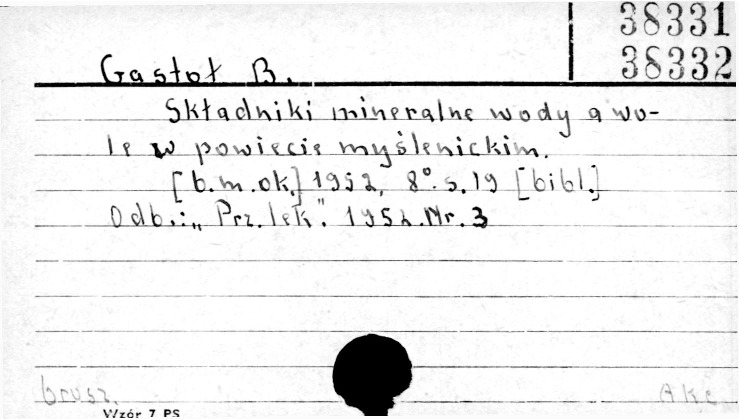 38331
38332
Gastoł B.
Składniki mineralne wody a wo-
le w powiecie myślenickim.
[b.m.ok.] 1952, 8°. s. 19 [bibl.]
Odb.: „Prz. lek". 1952. Nr. 3
brosz.
Akc
Wzór 7 PS